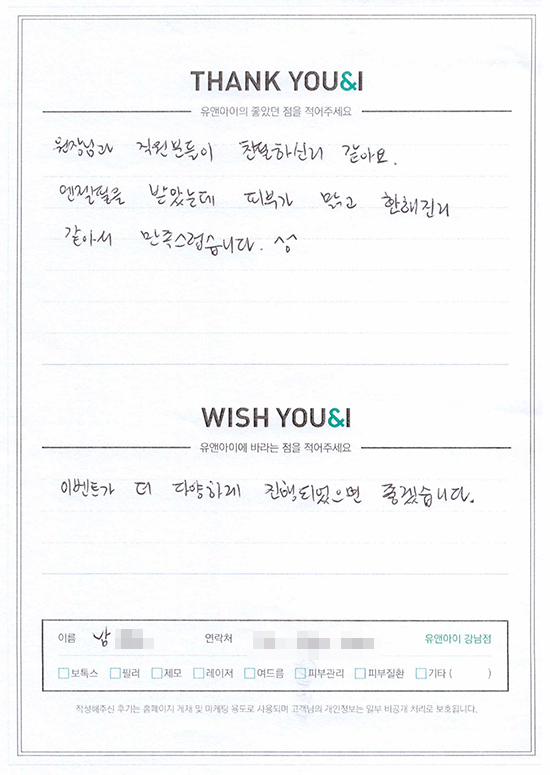 THANK YOU&I
유앤아이의 좋았던 점을 적어주세요
원장님과 직원분들이 친절하신거 같아요.
엔젤필을 받았는데 피부가 맑고 환해진거
같아서 만족스럽습니다. ^^
WISH YOU&I
유앤아이에 바라는 점을 적어주세요
이벤트가 더 다양하게 진행되었으면 좋겠습니다.
이름 남 연락처 유앤아이 강남점
보톡스 필러 제모 레이저 여드름 피부관리 피부질환 기타 ( )
작성해주신 후기는 홈페이지 게재 및 마케팅 용도로 사용되며 고객님의 개인정보는 일부 비공개 처리로 보호됩니다.